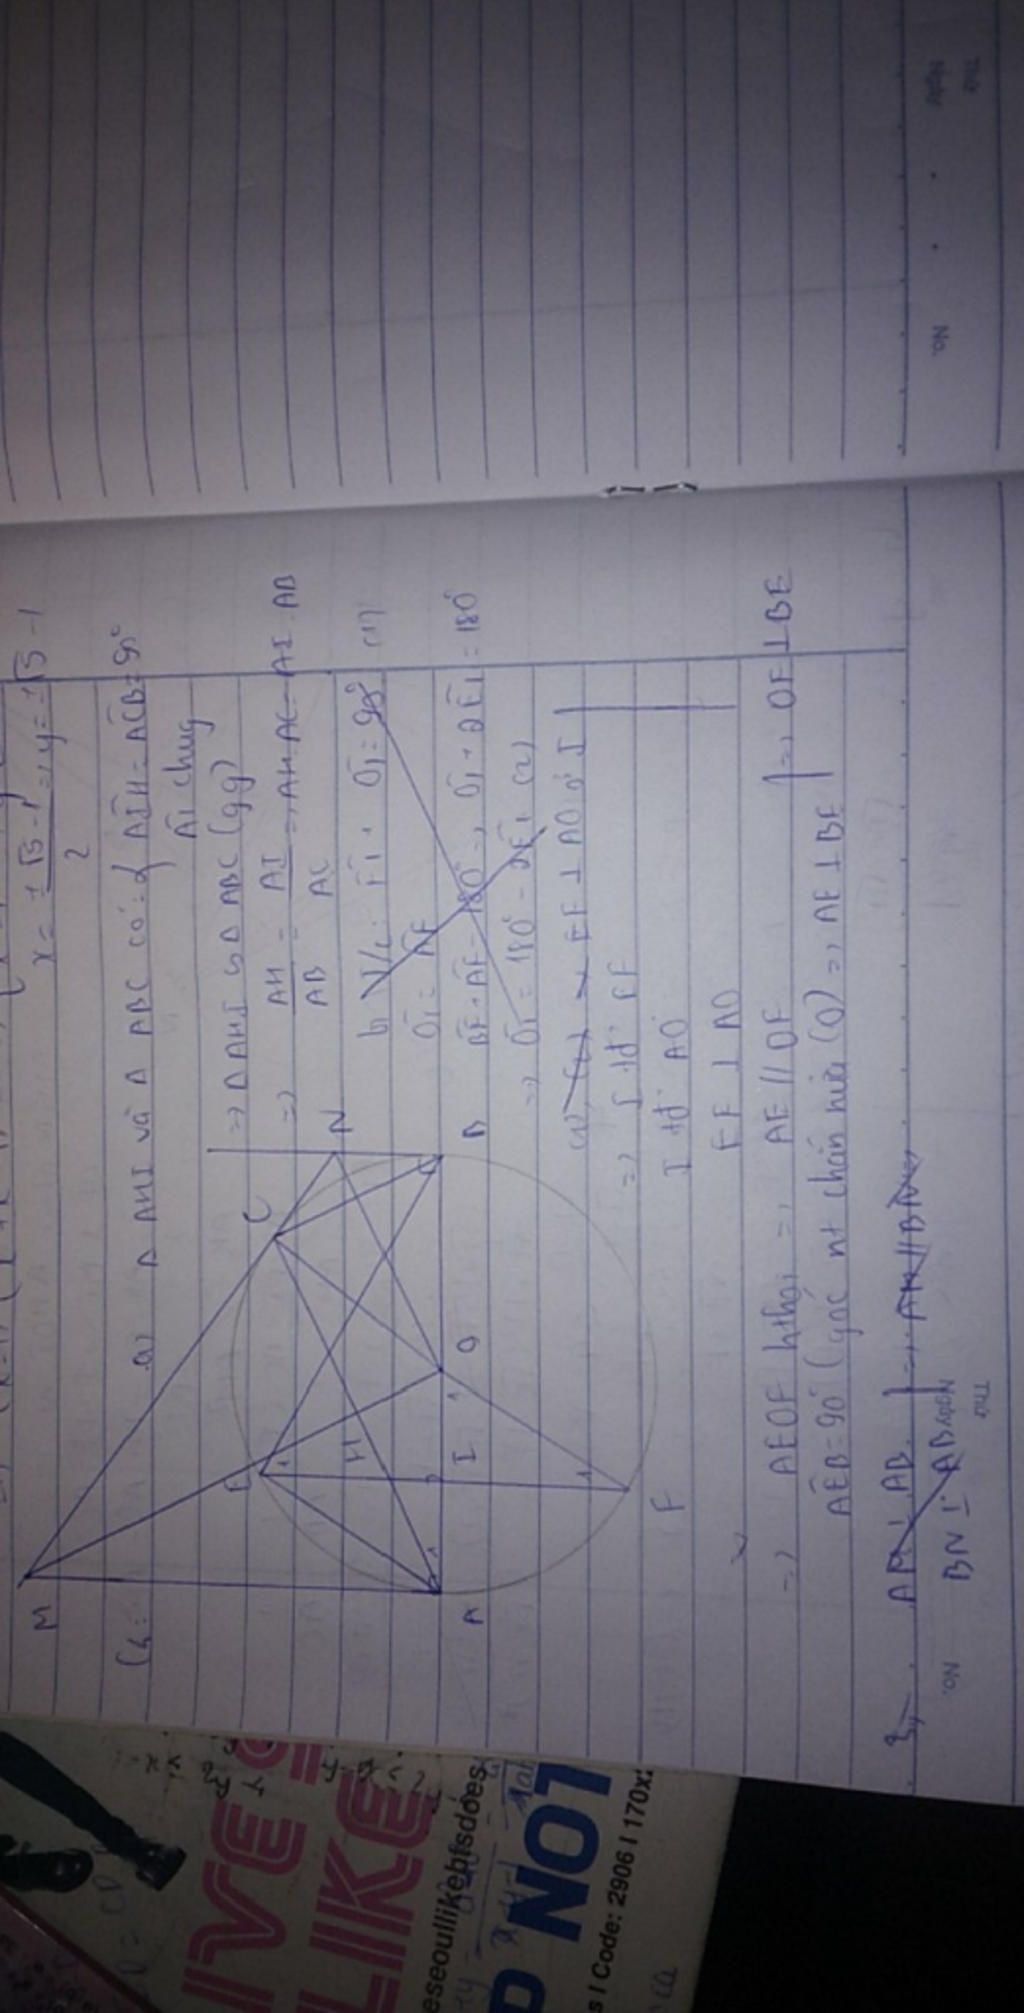 x = ±√5 - 1 / 2 => y = ±√5 - 1
C4:
a) Δ AHI và Δ ABC có: { AIH = ACB = 90°
A1 chung
=> Δ AHI ∽ Δ ABC (gg)
=> AH / AB = AI / AC => AH. AC = AI. AB
b V/c: F1 + O1 = 90° (1)
O1 = AF
BF + AF = 180° => O1 + 2E1 = 180°
=> O1 = 180° - 2E1 (2)
(1), (2) => EF ⊥ AO ở I
=> I tđ EF
I tđ AO
EF ⊥ AO
=> AEOF hthoi => AE // OF
AEB = 90° (góc nt chắn nửa (O)) => AE ⊥ BE
=> OF ⊥ BE
AM ⊥ AB
BN ⊥ AB
=> AM // BN
M
E
C
N
H
A
I
O
B
F
No.
Thứ
Ngày
No.
Thứ
Ngày
LIVE
LIKE
eseoullikebtsdoes
NOT
s I Code: 2906 I 170x